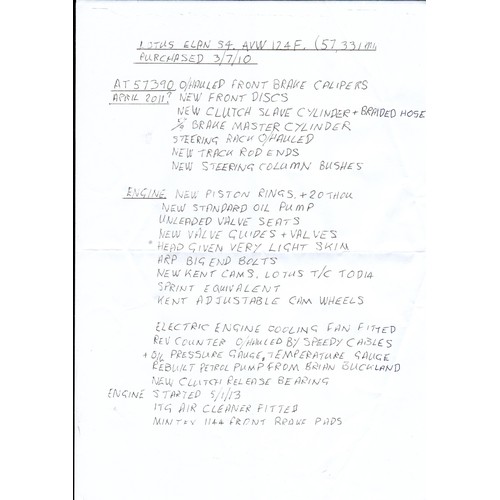 LOTUS ELAN S4, AVW 124F, (57,331 MLS
PURCHASED 3/7/10
AT 57390 O/HAULED FRONT BRAKE CALIPERS
APRIL 2011? NEW FRONT DISCS
NEW CLUTCH SLAVE CYLINDER + BRAIDED HOSE
BRAKE MASTER CYLINDER
STEERING RACK O/HAULED
NEW TRACK ROD ENDS
NEW STEERING COLUMN BUSHES
ENGINE NEW PISTON RINGS, +20 THOU
NEW STANDARD OIL PUMP
UNLEADED VALVE SEATS
NEW VALVE GUIDES + VALVES
* HEAD GIVEN VERY LIGHT SKIM
ARP BIG END BOLTS
NEW KENT CAMS. LOTUS T/C
SPRINT EQUIVALENT
KENT ADJUSTABLE CAM WHEELS
ELECTRIC ENGINE COOLING FAN FITTED
REV COUNTER O/HAULED BY SPEEDY CABLES
+ OIL PRESSURE GAUGE, TEMPERATURE GAUGE
REBUILT PETROL PUMP FROM BRIAN BUCKLAND
NEW CLUTCH RELEASE BEARING
ENGINE STARTED 5/1/13
ITG AIR CLEANER FITTED
MINTEX 1144 FRONT BRAKE PADS